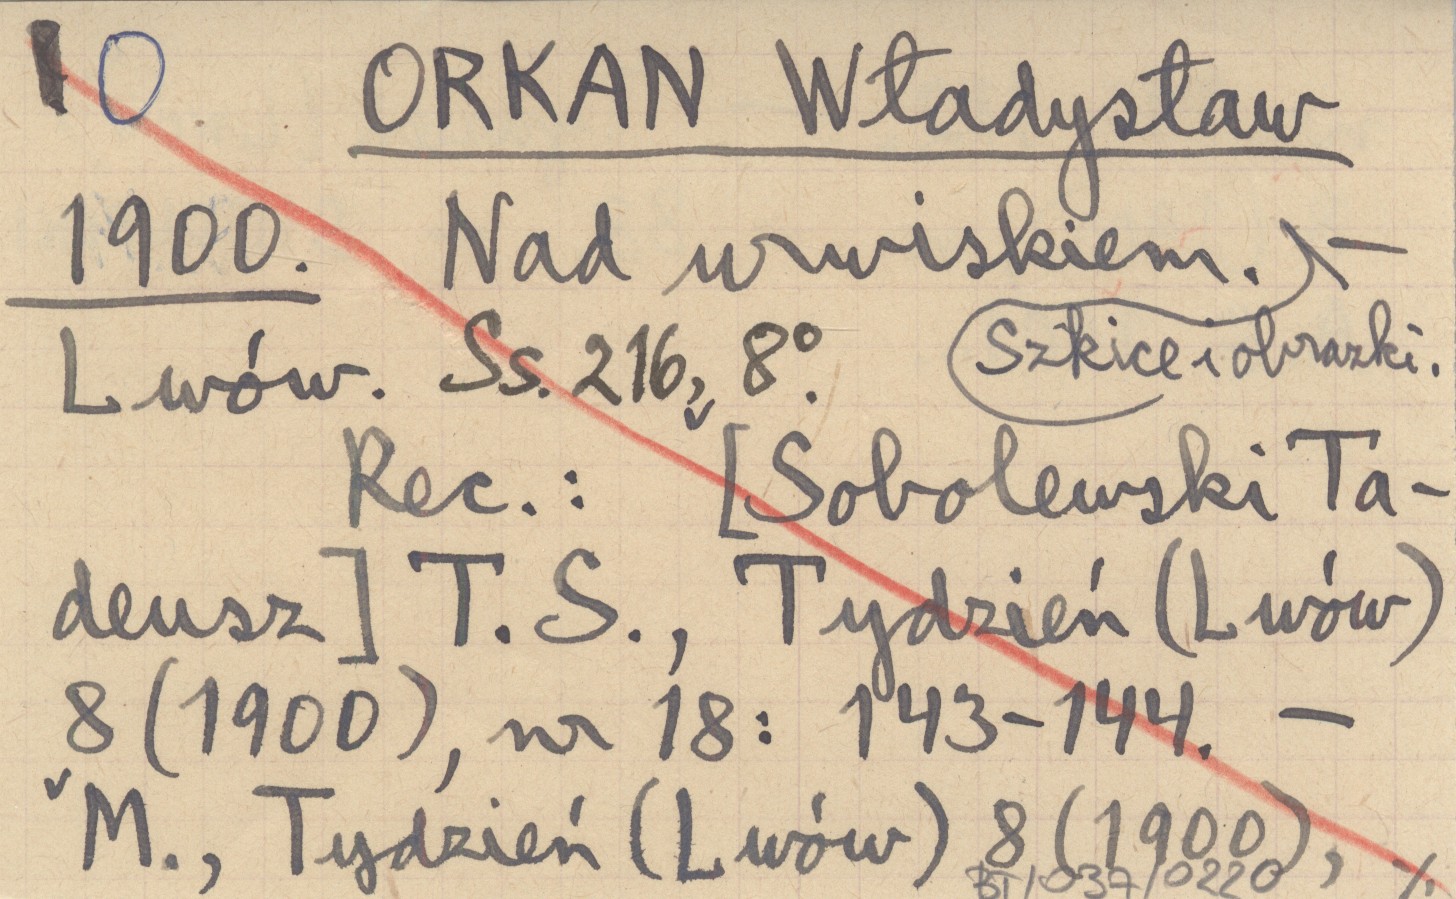 O ORKAN Władysław
1900. Nad urwiskiem. —
Szkice i obrazki.
Lwów. Ss. 216, 8°.
Rec.: [Sobolewski Ta-
deusz] T. S., Tydzień (Lwów)
8 (1900), nr 18: 143-144. —
M., Tydzień (Lwów) 8 (1900),
BT/037/0220 ./.